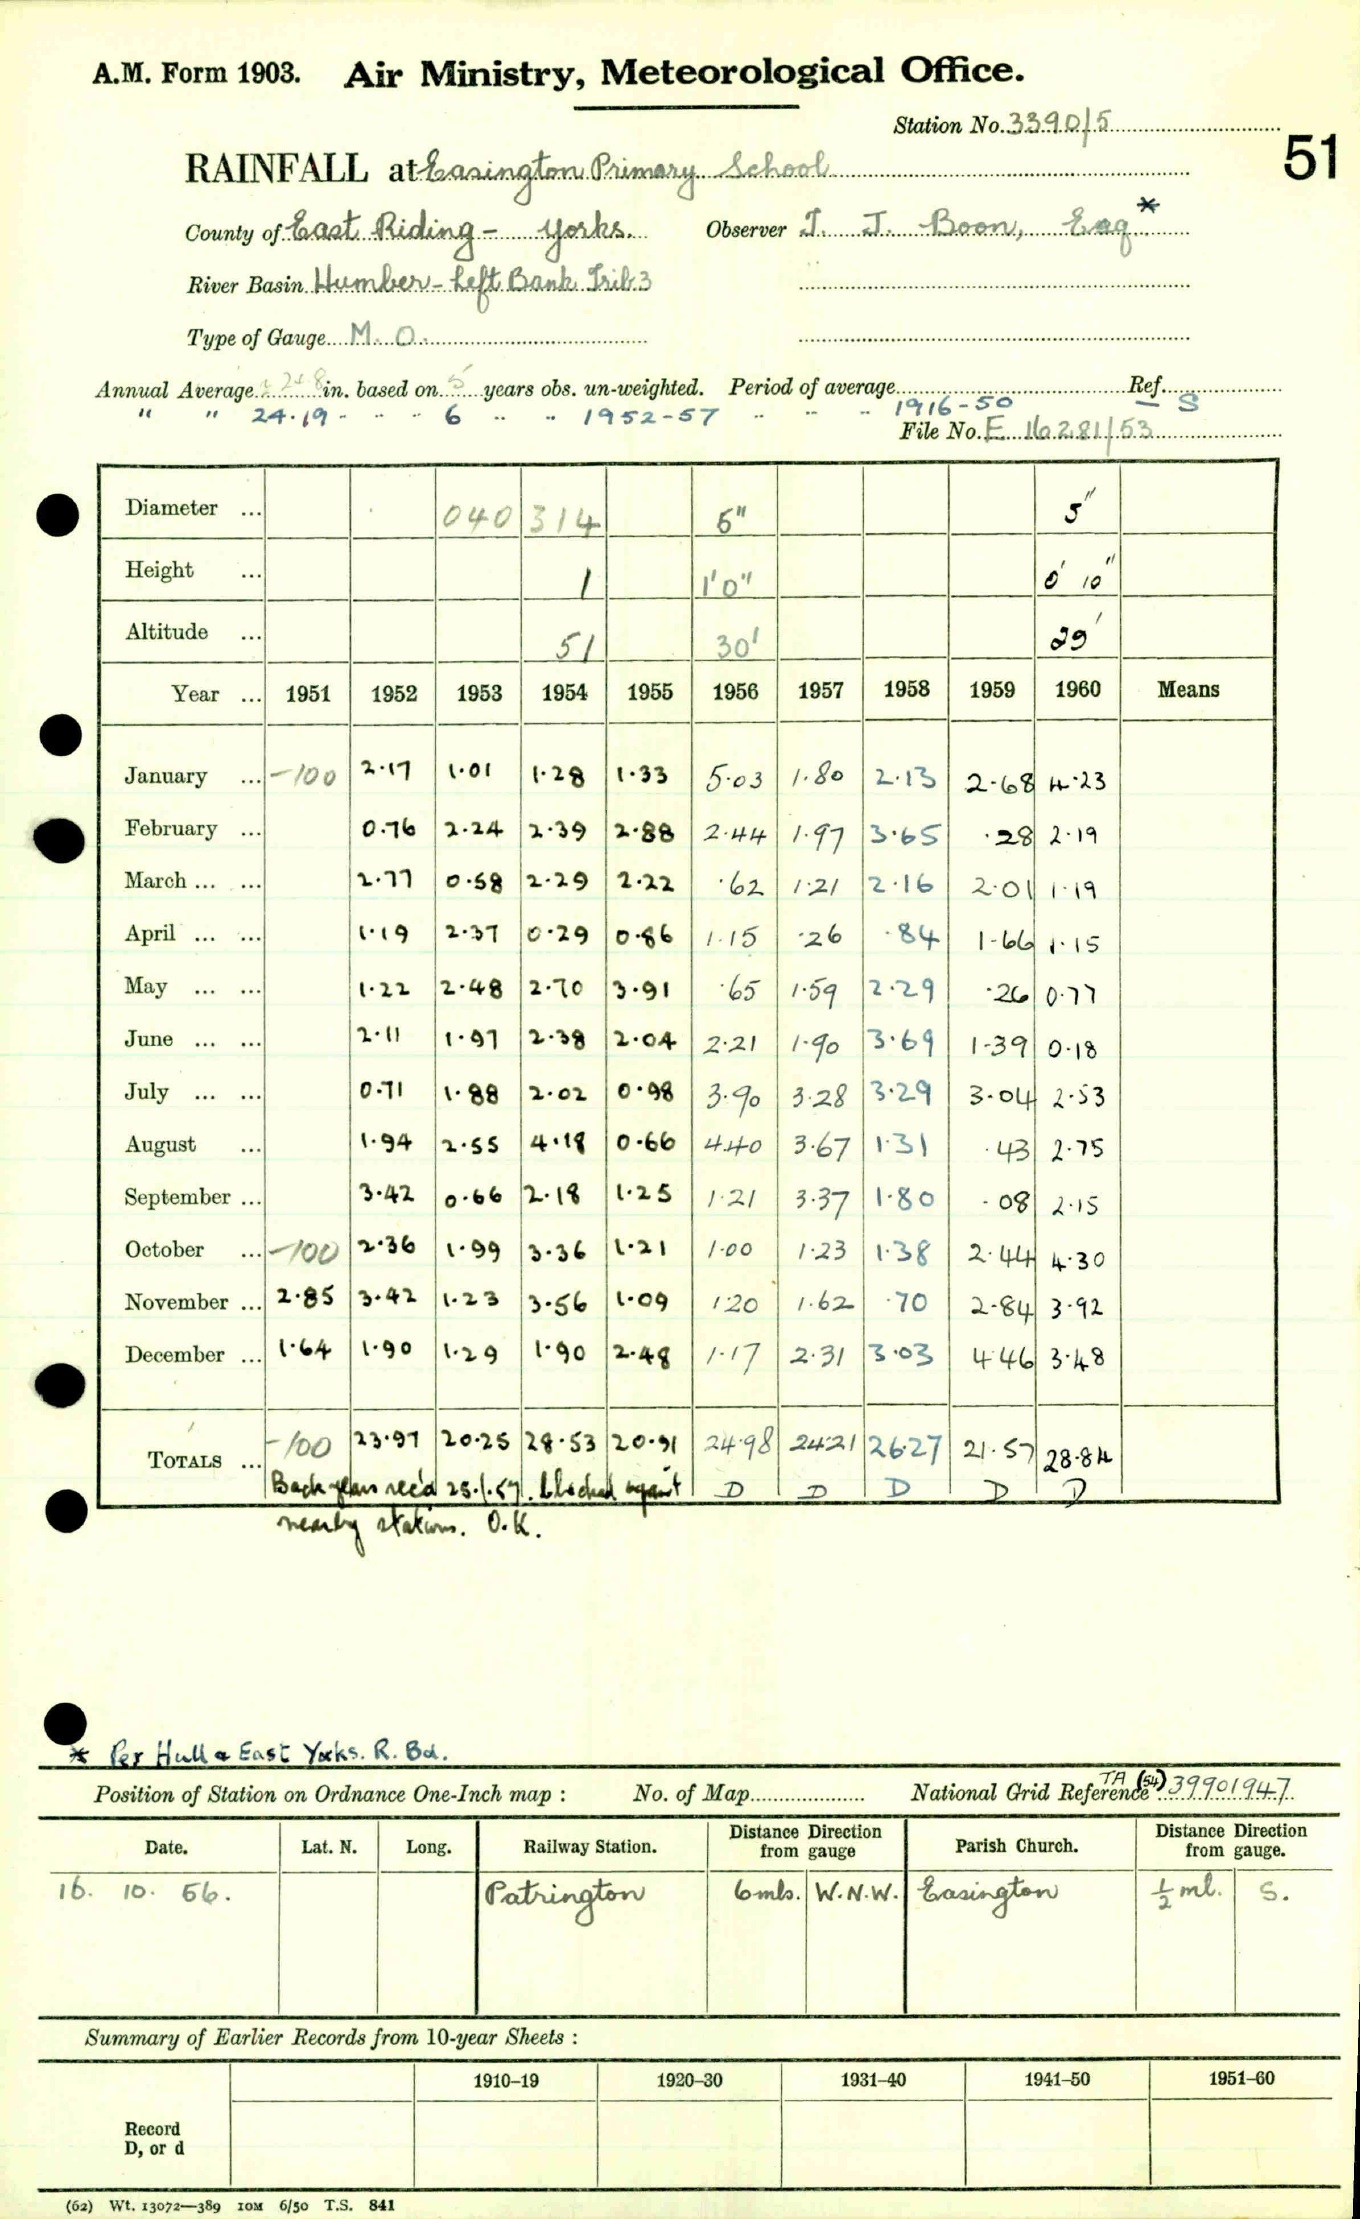 A.M. Form 1903. Air Ministry, Meteorological Office.
Station No. 3390/5
51
RAINFALL at Easington Primary School
County of East Riding - Yorks. Observer T. J. Boon, Esq *
River Basin Humber - Left Bank Trib 3
Type of Gauge M. O.
Annual Average in. based on 5 years obs. un-weighted. Period of average Ref.
" " 24.19 - - - 6 " " 1952-57 " - - 1916-50 - S
File No. E 16281/53
Diameter ... 040 314 5" 5"
Height ... 1 1'0" 0' 10"
Altitude ... 51 30' 29'
Year ... 1951 1952 1953 1954 1955 1956 1957 1958 1959 1960 Means
January ... -100 2.17 1.01 1.28 1.33 5.03 1.80 2.13 2.68 4.23
February ... 0.76 2.24 2.39 2.88 2.44 1.97 3.65 .28 2.19
March ... ... 2.77 0.58 2.29 2.22 .62 1.21 2.16 2.01 1.19
April ... ... 1.19 2.37 0.29 0.86 1.15 .26 .84 1.66 1.15
May ... ... 1.22 2.48 2.70 3.91 .65 1.59 2.29 .26 0.77
June ... ... 2.11 1.97 2.38 2.04 2.21 1.90 3.69 1.39 0.18
July ... ... 0.71 1.88 2.02 0.98 3.90 3.28 3.29 3.04 2.53
August ... 1.94 2.55 4.18 0.66 4.40 3.67 1.31 .43 2.75
September ... 3.42 0.66 2.18 1.25 1.21 3.37 1.80 .08 2.15
October ... -100 2.36 1.99 3.36 1.21 1.00 1.23 1.38 2.44 4.30
November ... 2.85 3.42 1.23 3.56 1.09 1.20 1.62 .70 2.84 3.92
December ... 1.64 1.90 1.29 1.90 2.48 1.17 2.31 3.03 4.46 3.48
TOTALS ... -100 23.97 20.25 28.53 20.91 24.98 24.21 26.27 21.57 28.84
Back years rec'd 25.1.57. Checked against D D D D D
nearby stations. O.K.
* Per Hull & East Yorks. R. Bd.
Position of Station on Ordnance One-Inch map : No. of Map National Grid Reference TA (54) 39901947
Date. Lat. N. Long. Railway Station. Distance from gauge Direction Parish Church. Distance from gauge. Direction
16. 10. 56. Patrington 6 mls. W.N.W. Easington ½ ml. S.
Summary of Earlier Records from 10-year Sheets :
1910–19 1920–30 1931–40 1941–50 1951–60
Record
D, or d
(62) Wt. 13072—389 10M 6/50 T.S. 841